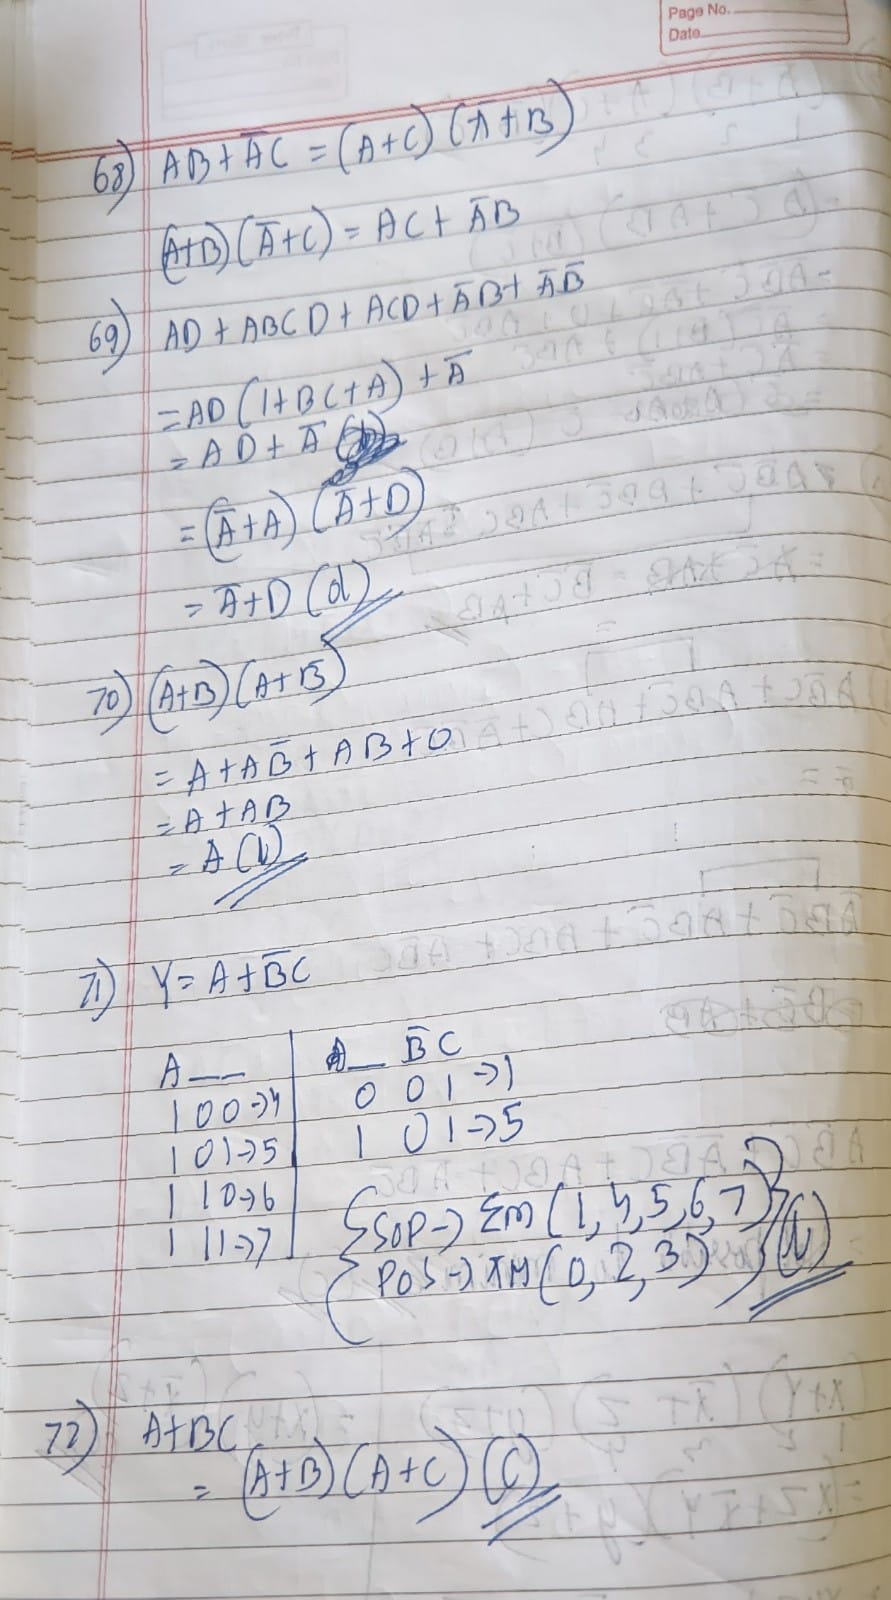 Page No.
Date
68) AB + A̅C = (A+C) (A̅+B)
(A+B) (A̅+C) = AC + A̅B
69) AD + ABCD + ACD + A̅B + A̅B̅
= AD (1 + BC + A) + A̅
= AD + A̅
= (A̅+A) (A̅+D)
= A̅+D (d)
70) (A+B) (A+B̅)
= A + AB̅ + AB + 0
= A + AB
= A (b)
71) Y = A + B̅C
A _ _ _ B̅ C
1 0 0 → 4 0 0 1 → 1
1 0 1 → 5 1 0 1 → 5
1 1 0 → 6
1 1 1 → 7
SOP → Σm (1, 4, 5, 6, 7)
POS → πM (0, 2, 3)
72) A+BC
= (A+B) (A+C) (C)